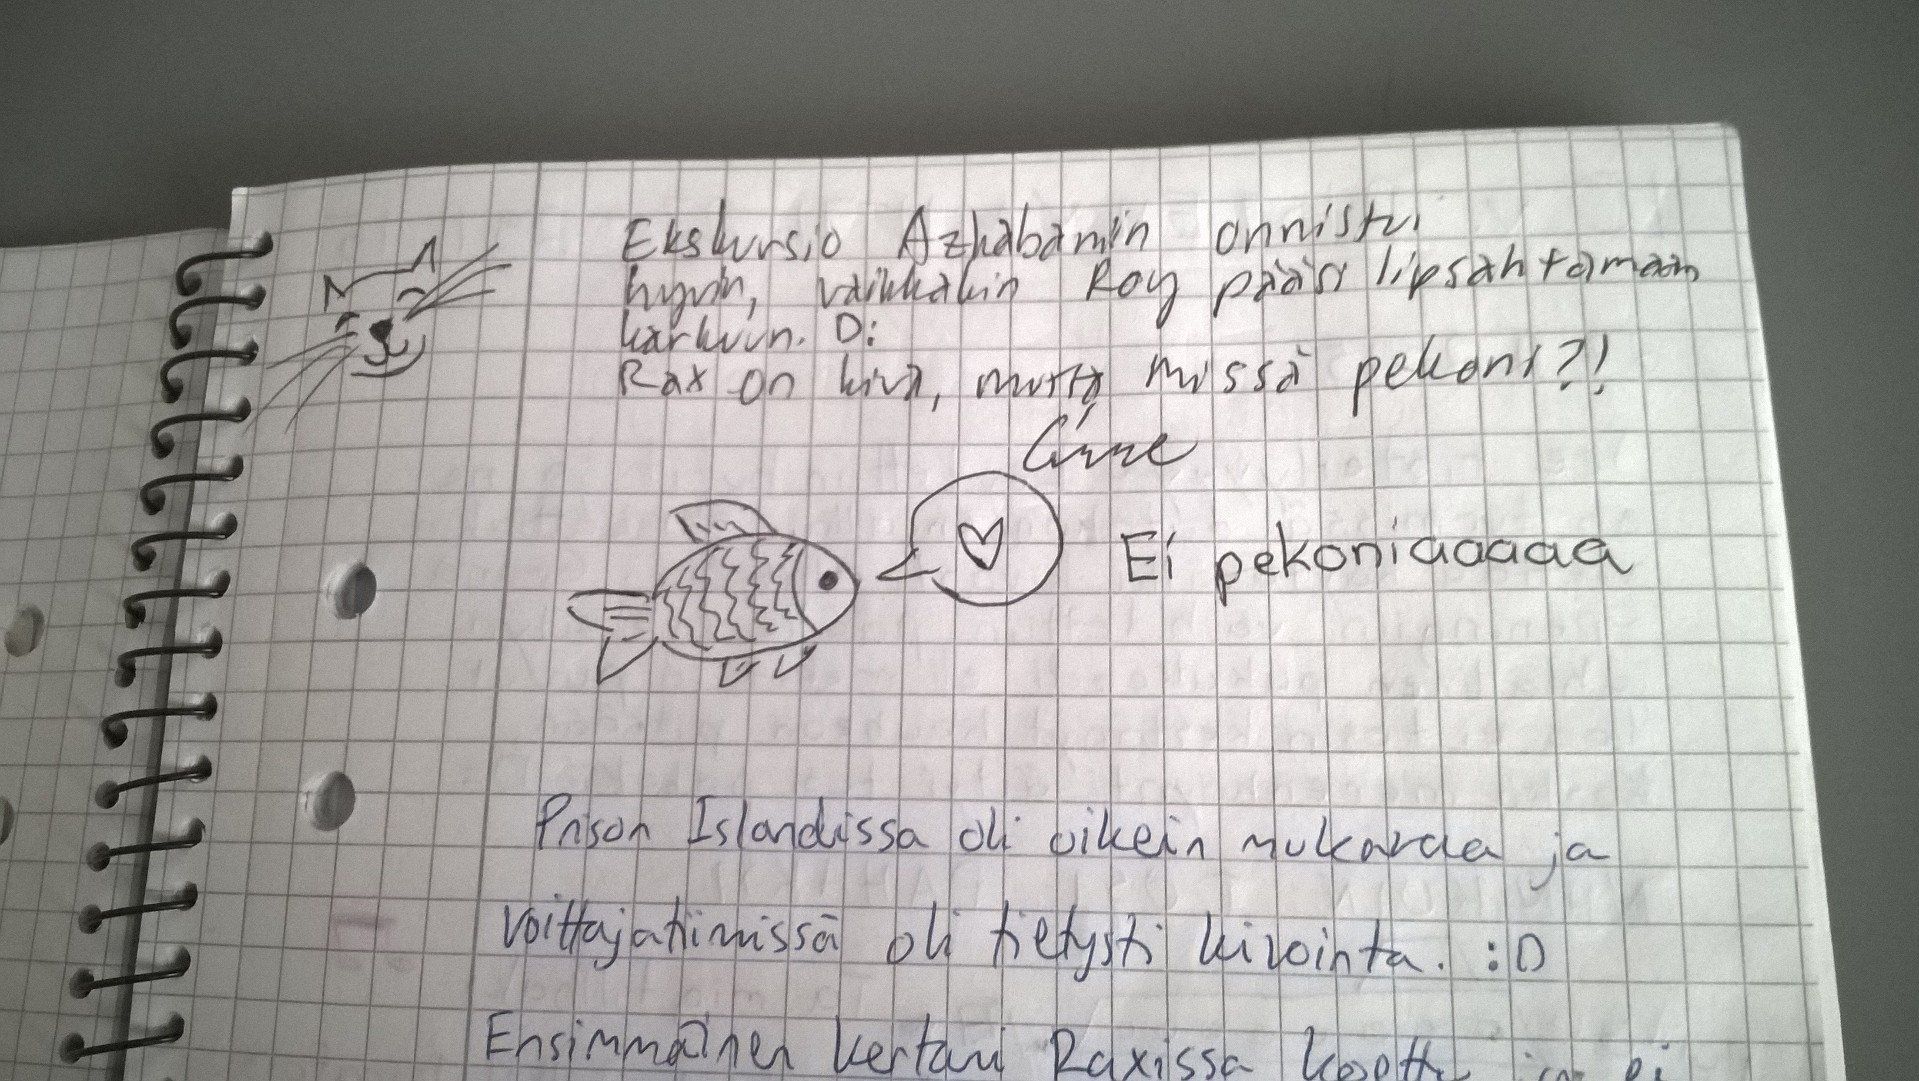 Ekskursio Azkabamin onnistui
hyvin, vaikkakin Roy pääsi lipsahtamaan
karkuun. D:
Rax on kiva, mutta missä pekoni?!
Ei pekoniaaaaa
Prison Islandissa oli oikein mukavaa ja
voittajatiimissä oli tietysti kivointa. :D
Ensimmäinen kertani Raxissa koettu ja ei